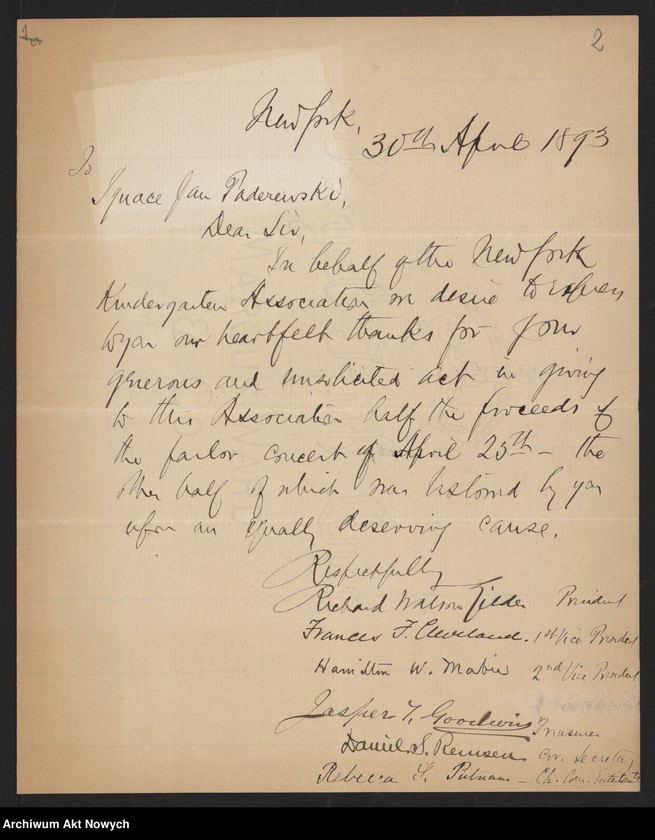 2
New York,
30th April 1893
To
Ignace Jan Paderewski,
Dear Sir,
In behalf of the New York
Kindergarten Association we desire to express
to you our heartfelt thanks for your
generous and unsolicited act in giving
to this Association half the proceeds of
the parlor concert of April 25th – the
other half of which was bestowed by you
upon an equally deserving cause.
Respectfully
Richard Watson Gilder President
Frances F. Cleveland. 1st Vice President
Hamilton W. Mabie 2nd Vice President
Jasper T. Goodwin Treasurer
Daniel S. Remsen Cor. Secretary
Rebecca S. Putnam – Ch. Com.
Archiwum Akt Nowych